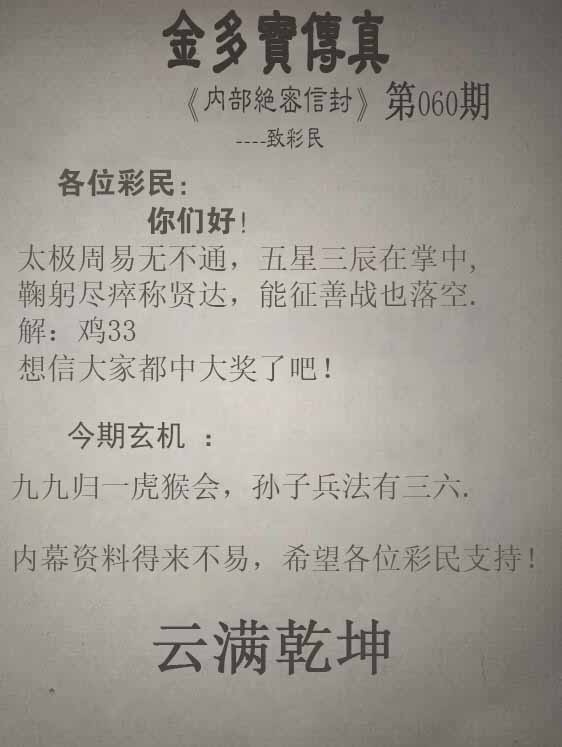 金多寶傳真
《内部絶密信封》第060期
----致彩民
各位彩民:
你们好!
太极周易无不通，五星三辰在掌中,
鞠躬尽瘁称贤达，能征善战也落空.
解：鸡33
想信大家都中大奖了吧！
今期玄机 ：
九九归一虎猴会，孙子兵法有三六.
内幕资料得来不易，希望各位彩民支持！
云满乾坤